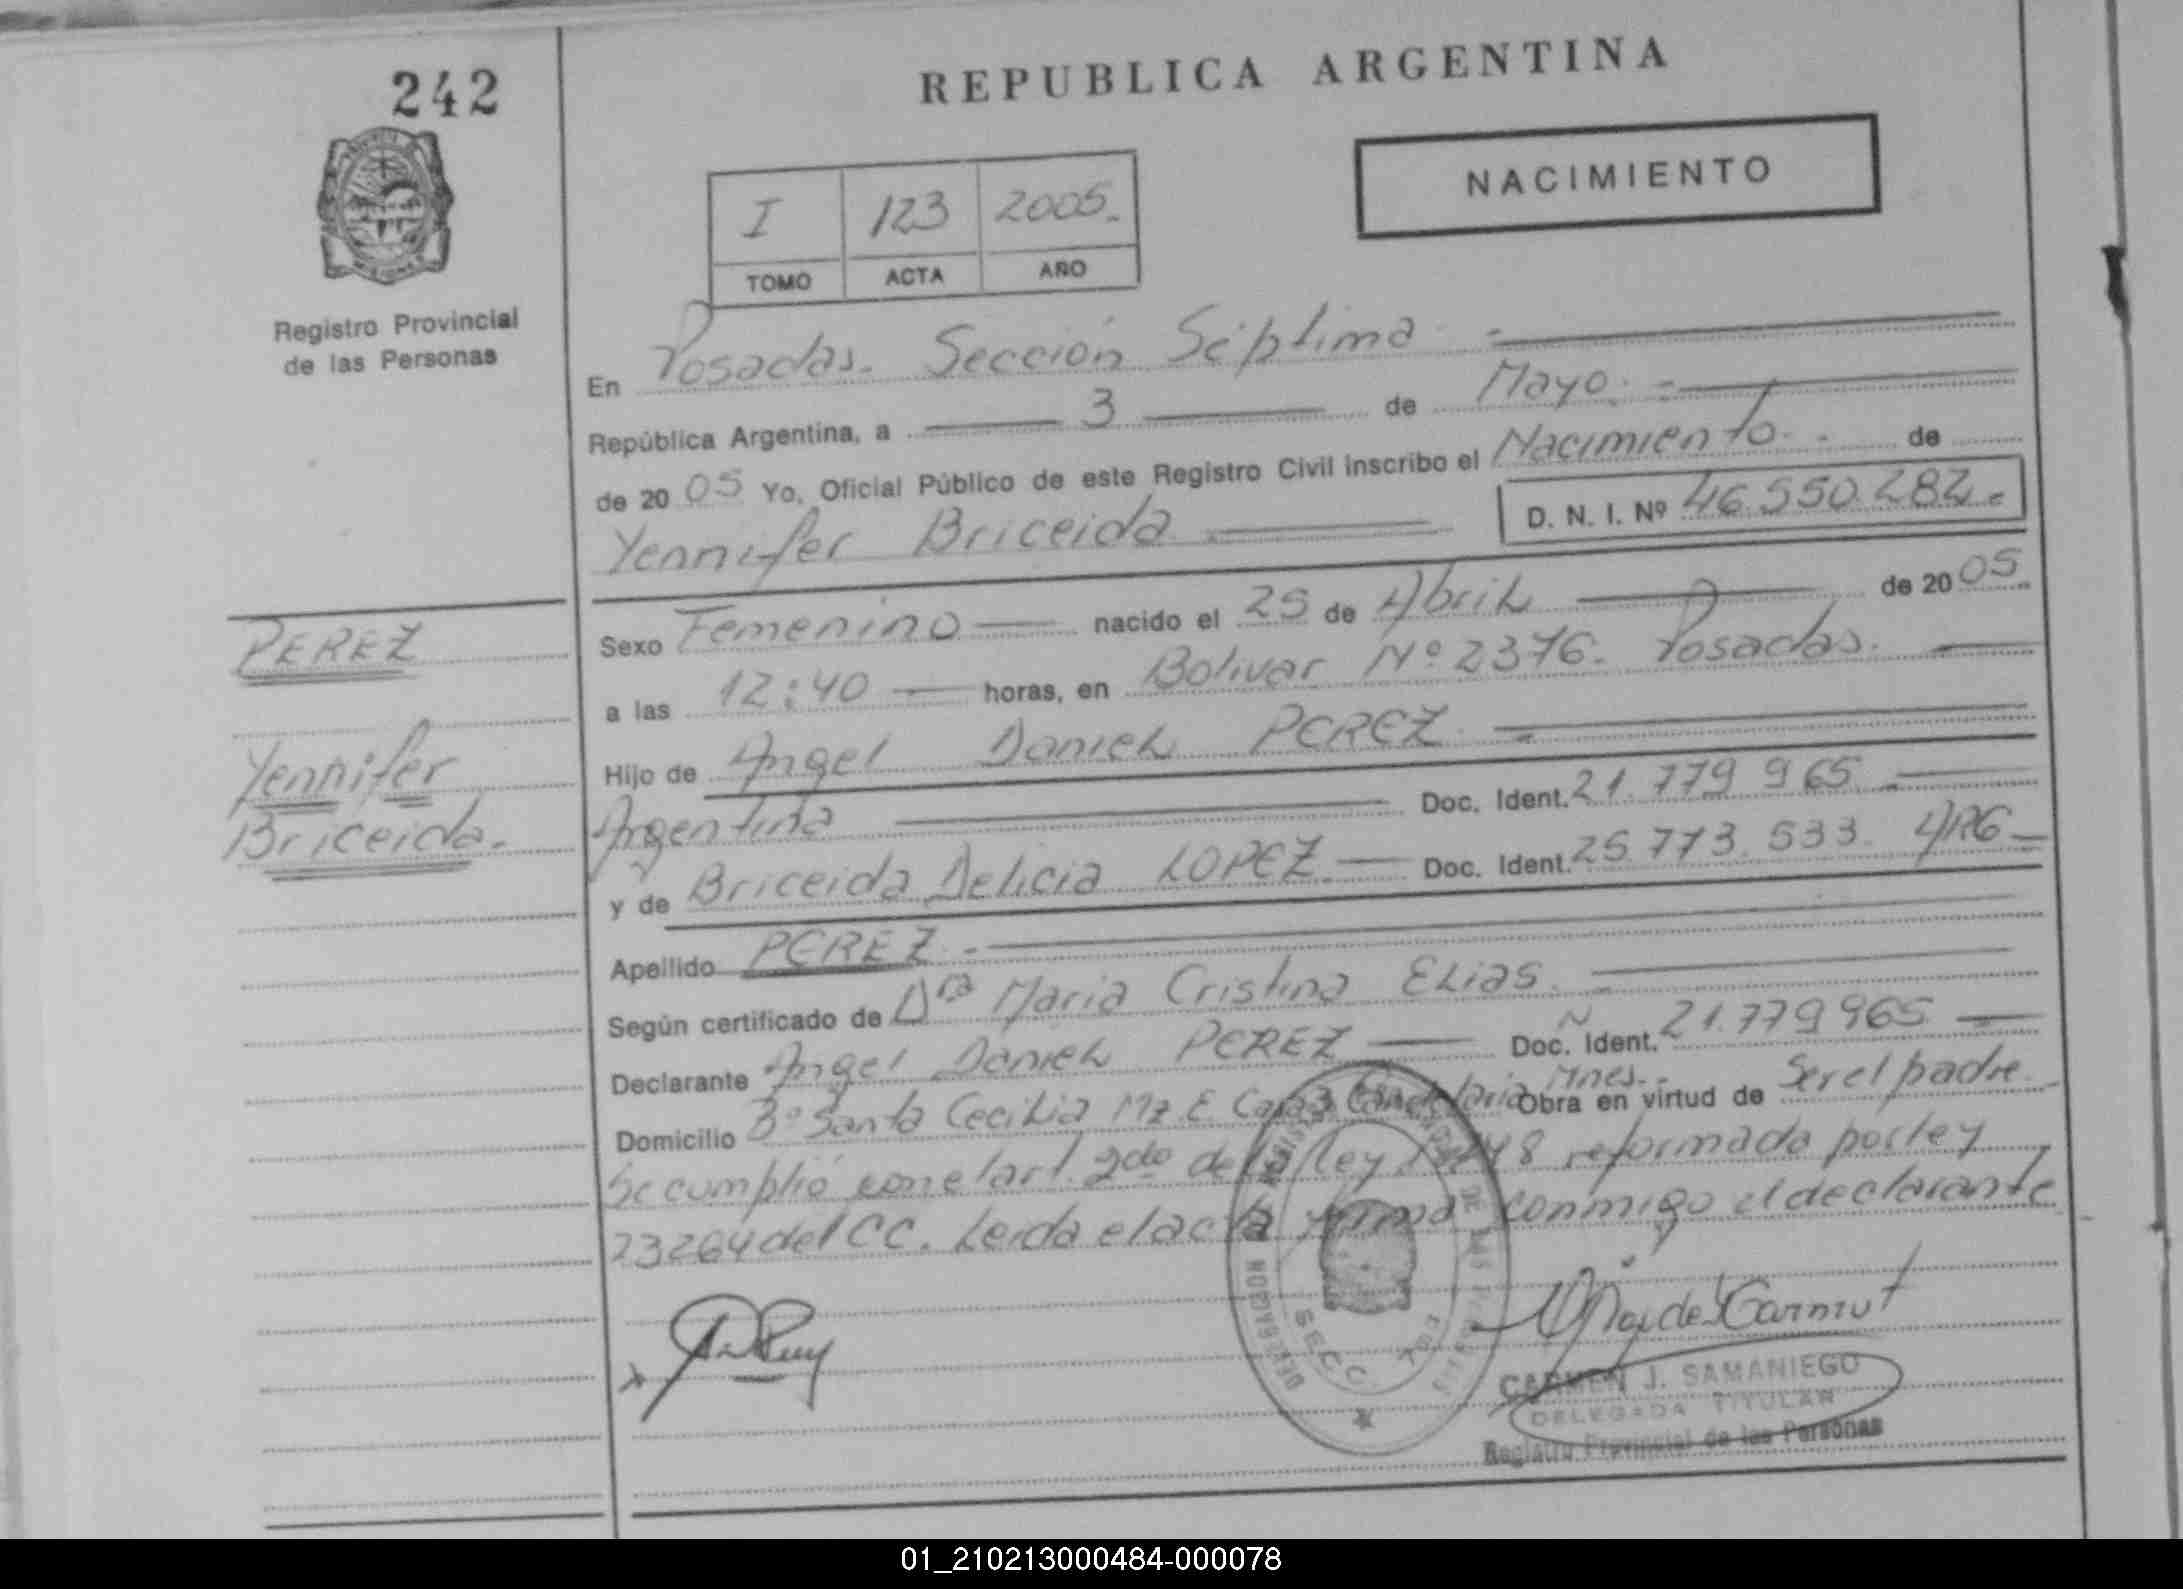 242
REPUBLICA ARGENTINA
NACIMIENTO
I 123 2005.
TOMO ACTA AÑO
Registro Provincial
de las Personas
En Posadas. Sección Séptima
República Argentina, a 3 de Mayo.
de 20 05 Yo, Oficial Público de este Registro Civil inscribo el Nacimiento. de
Yennifer Briceida D. N. I. Nº 46.550.282.
PEREZ
Yennifer
Briceida.
Sexo Femenino nacido el 25 de Abril de 20 05.
a las 12:40 horas, en Bolivar Nº 2376. Posadas.
Hijo de Angel Daniel PEREZ
Argentina Doc. Ident. 21.779.965
y de Briceida Delicia LOPEZ Doc. Ident. 25.773.533. ARG
Apellido PEREZ.
Según certificado de Dra Maria Cristina ELIAS.
Declarante Angel Daniel PEREZ Doc. Ident. 21.779.965
Domicilio Bº Santa Cecilia Mz. E Casa 3 Candelaria Mnes. Obra en virtud de Ser el padre.
Se cumplió con el art. 2do de la ley reformada por ley
23264 del CC. Leida el acta firma conmigo el declarante
SECC. 7
CARMEN J. SAMANIEGO
DELEGADA TITULAR
Registro Provincial de las Personas
01_210213000484-000078